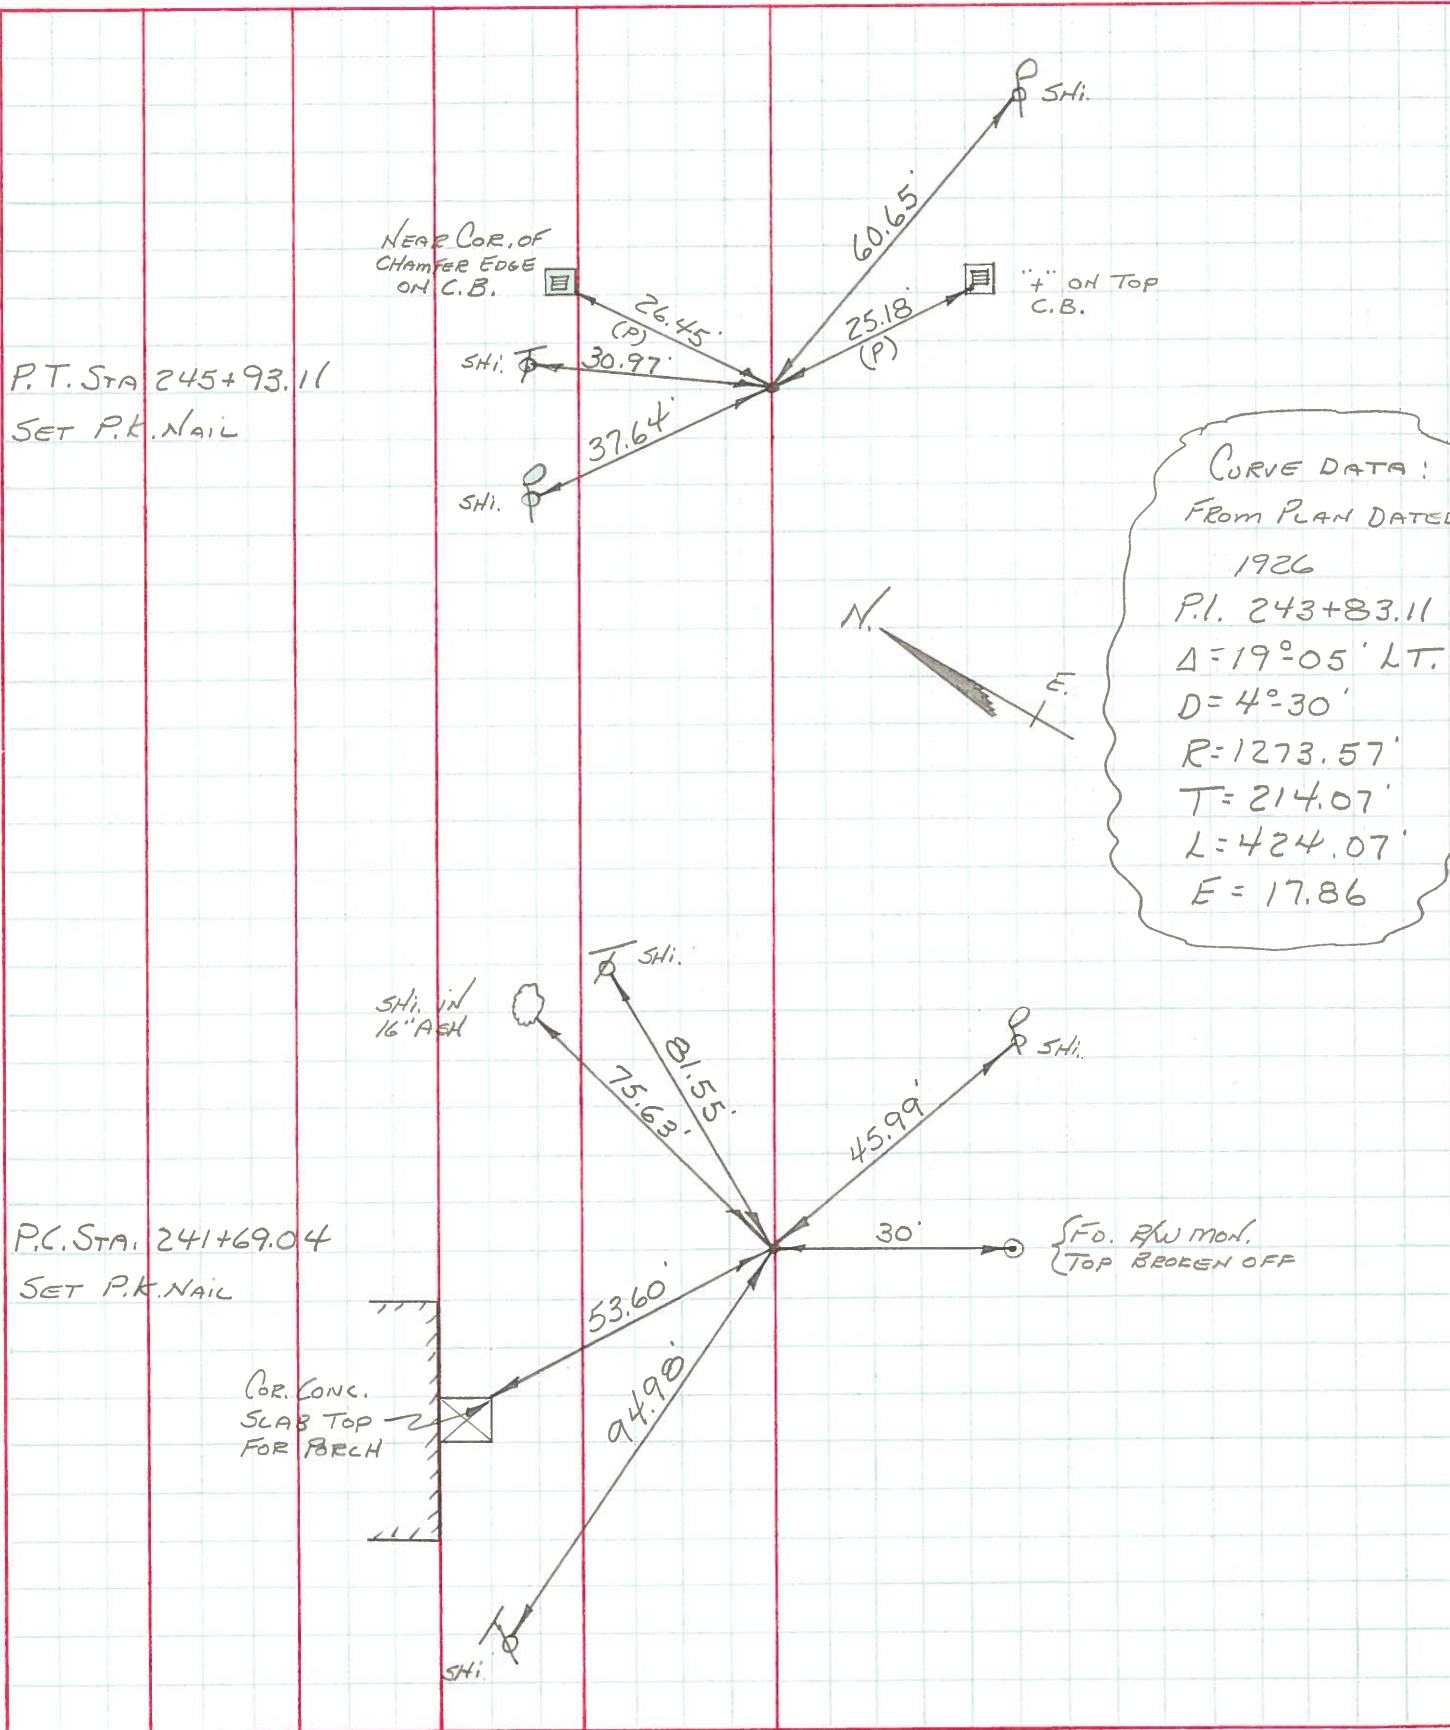 SHi.
60.65'
NEAR COR. OF
CHAMFER EDGE
ON C.B.
26.45'
(P)
25.18'
(P)
"+" ON TOP
C.B.
SHi.
30.97'
P.T. STA 245+93.11
SET P.K. NAIL
37.64'
SHi.
CURVE DATA:
FROM PLAN DATED
1926
P.I. 243+83.11
Δ=19°-05' LT.
D=4°-30'
R=1273.57'
T=214.07'
L=424.07'
E=17.86
N.
E.
SHi.
SHi. iN
16" ASH
81.55'
75.63'
SHi.
45.99'
P.C. STA. 241+69.04
SET P.K. NAIL
30'
FD. R/W MON.
TOP BROKEN OFF
53.60'
COR. CONC.
SLAB TOP
FOR PORCH
94.98'
SHi.